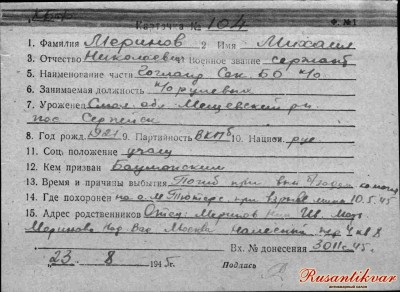 Карточка № 104
Ф. №1
1. Фамилия Меринов 2. Имя Михаил
3. Отчество Николаевич Военное звание сержант
5. Наименование части
6. Занимаемая должность к/о рулевых
7. Уроженец Смол. обл. Мещевский р-н
пос. Серпейск
8. Год рожд. 1921 9. Партийность ВКПб 10. Национ. рус
11. Соц. положение учащ
12. Кем призван Бауманским
13. Время и причины выбытия Погиб при вып б/задан
14. Где похоронен на о. М Тютерс при взрыве мины 10.5.45
15. Адрес родственников Отец: Меринов Ник
Меринова Москва
Вх. № донесения
23 - 8 1945 г. Подпись
Rusantikvar